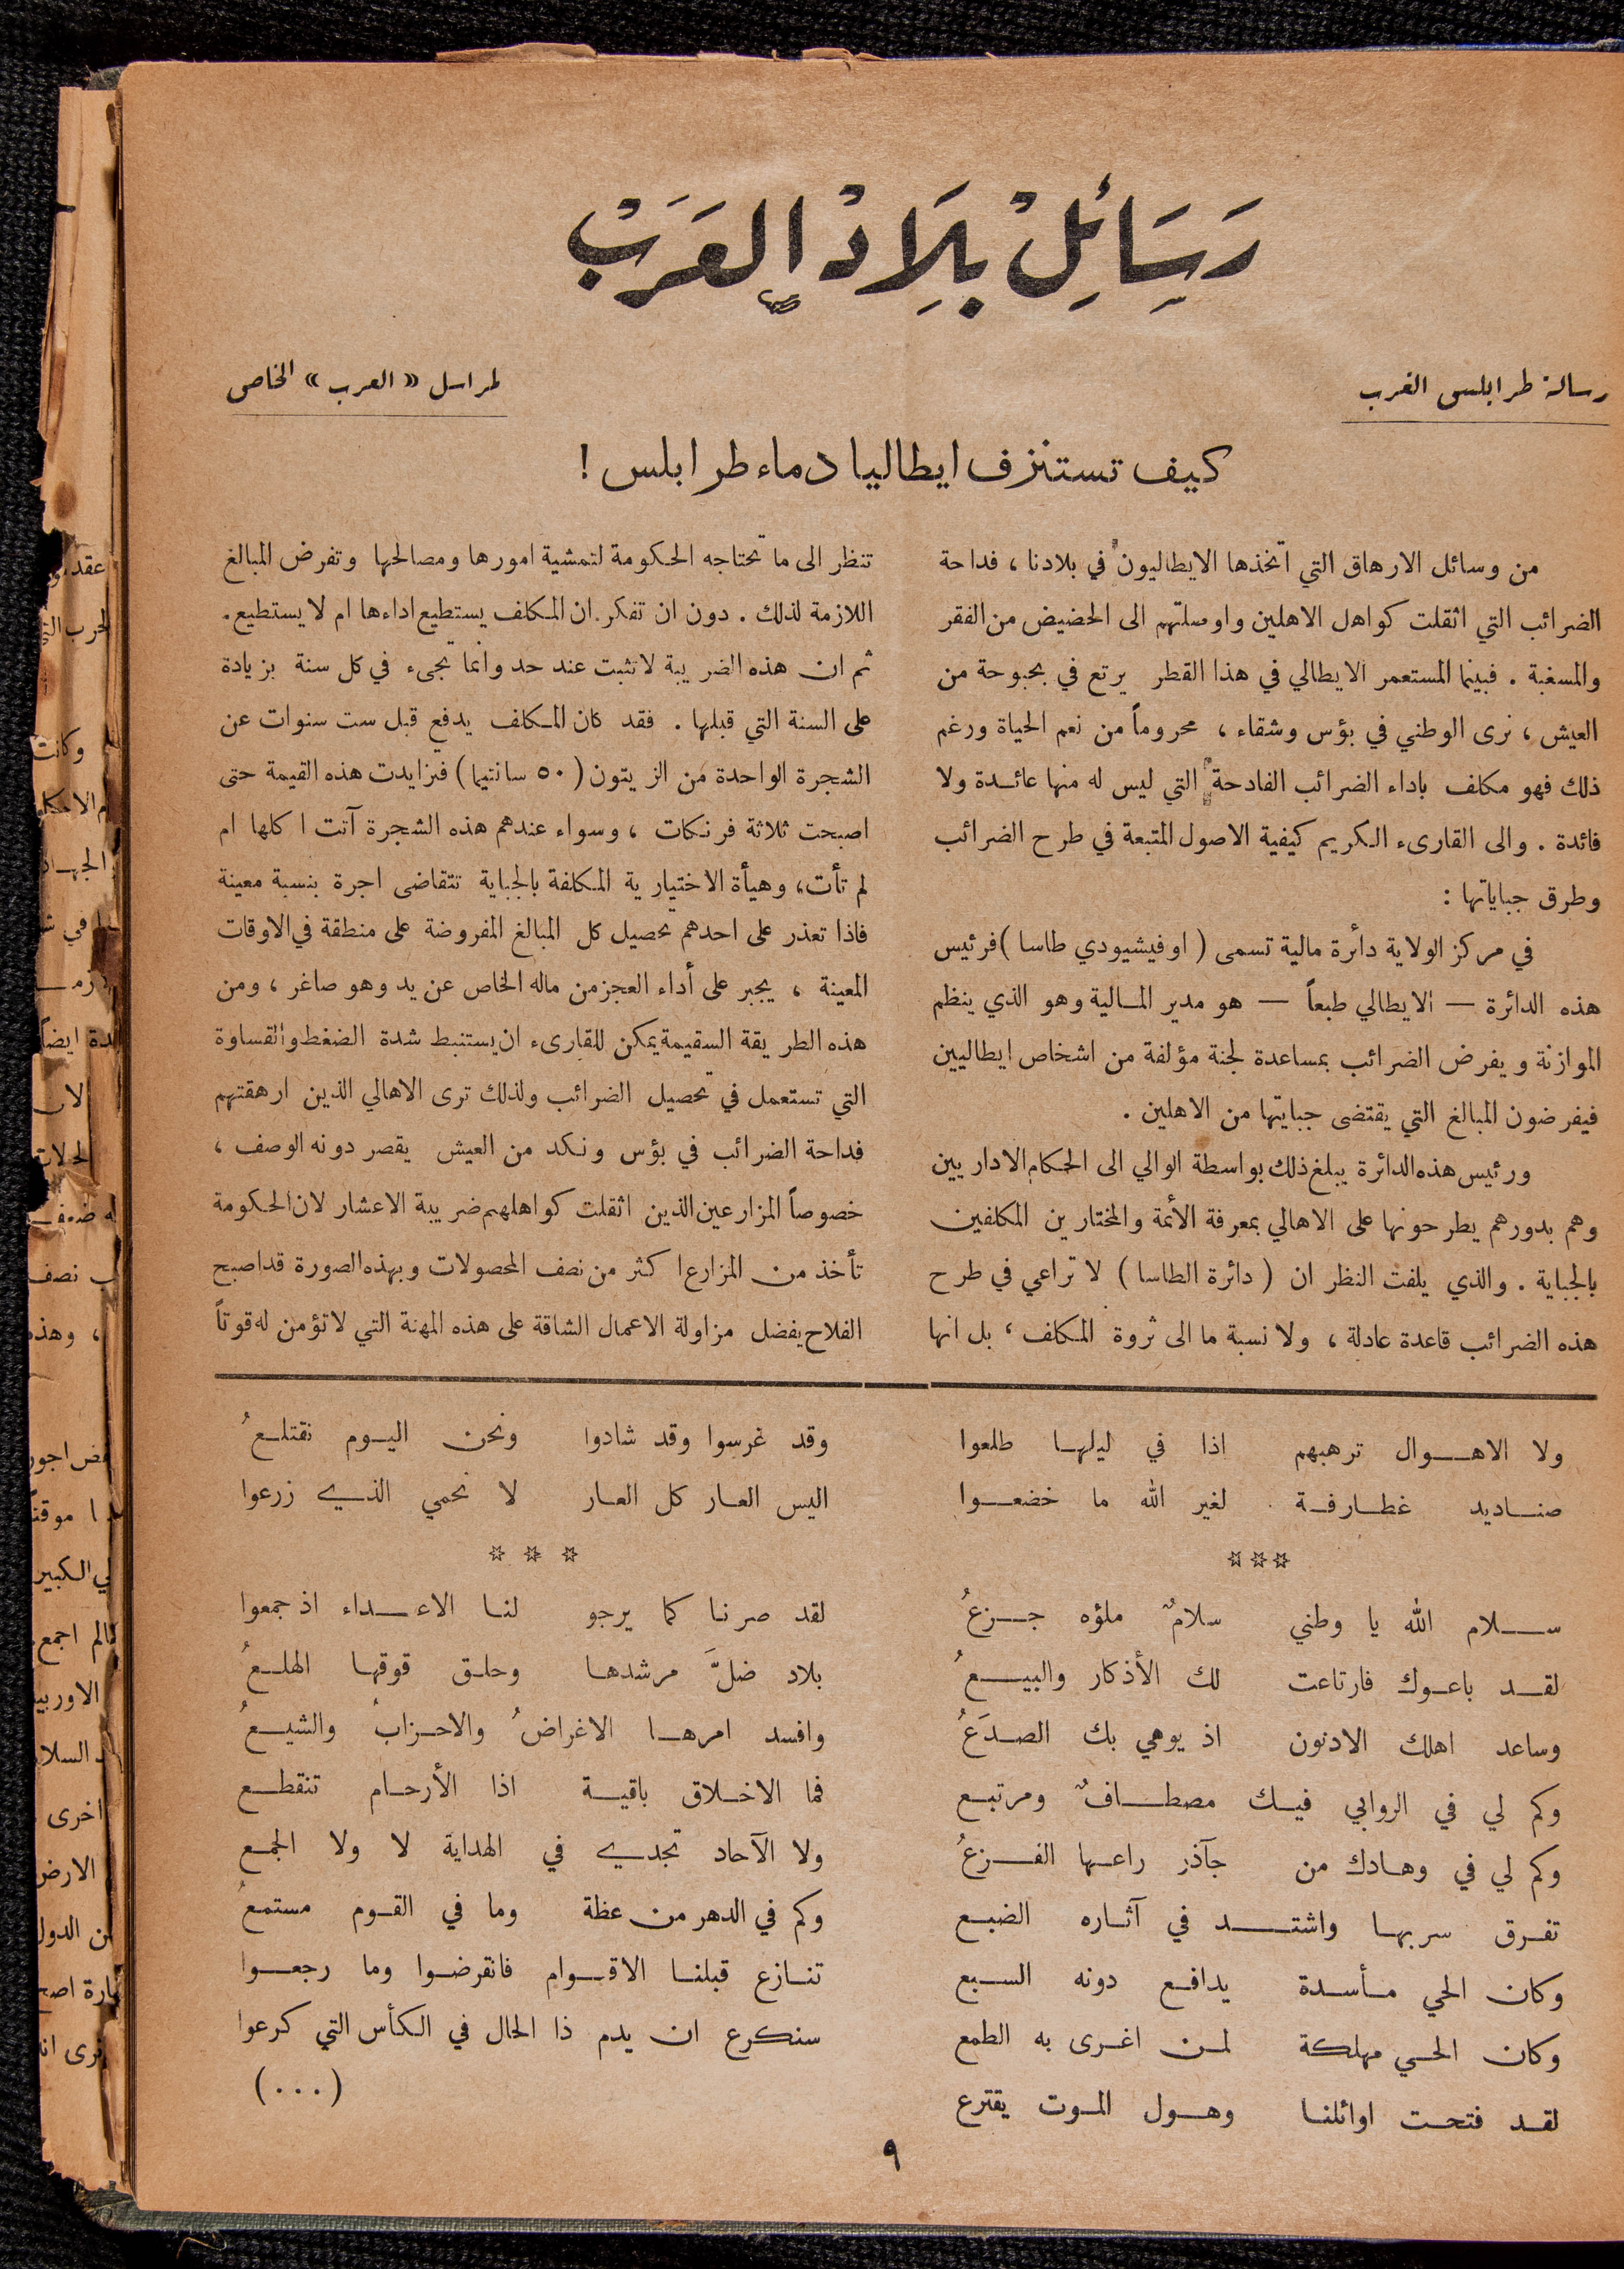 رَسَائِلْ بِلَادْ العَرَبْ
رسالة طرابلس الغرب
لمراسل «العرب» الخاص
كيف تستنزف ايطاليا دماء طرابلس !
من وسائل الارهاق التي اتخذها الايطاليون في بلادنا ، فداحة
الضرائب التي اثقلت كواهل الاهلين واوصلتهم الى الحضيض من الفقر
والمسغبة . فبينما المستعمر الايطالي في هذا القطر يرتع في بحبوحة من
العيش ، نرى الوطني في بؤس وشقاء ، محروماً من نعم الحياة ورغم
ذلك فهو مكلف باداء الضرائب الفادحة التي ليس له منها عائدة ولا
فائدة . والى القارىء الكريم كيفية الاصول المتبعة في طرح الضرائب
وطرق جباياتها :
في مركز الولاية دائرة مالية تسمى ( اوفيشيودي طاسا ) فرئيس
هذه الدائرة — الايطالي طبعاً — هو مدير المالية وهو الذي ينظم
الموازنة ويفرض الضرائب بمساعدة لجنة مؤلفة من اشخاص ايطاليين
فيفرضون المبالغ التي يقتضى جبايتها من الاهلين .
ورئيس هذه الدائرة يبلغ ذلك بواسطة الوالي الى الحكام الاداريين
وهم بدورهم يطرحونها على الاهالي بمعرفة الأئمة والمختارين المكلفين
بالجباية . والذي يلفت النظر ان ( دائرة الطاسا ) لا تراعي في طرح
هذه الضرائب قاعدة عادلة ، ولا نسبة ما الى ثروة المكلف ، بل انها
تنظر الى ما تحتاجه الحكومة لتمشية امورها ومصالحها وتفرض المبالغ
اللازمة لذلك . دون ان تفكر ان المكلف يستطيع اداءها ام لا يستطيع .
ثم ان هذه الضريبة لا تثبت عند حد وانما تجيء في كل سنة بزيادة
على السنة التي قبلها . فقد كان المكلف يدفع قبل ست سنوات عن
الشجرة الواحدة من الزيتون ( ٥٠ سانتيما ) فتزايدت هذه القيمة حتى
اصبحت ثلاثة فرنكات ، وسواء عندهم هذه الشجرة آتت اكلها ام
لم تأت ، وهيأة الاختيارية المكلفة بالجباية تتقاضى اجرة بنسبة معينة
فاذا تعذر على احدهم تحصيل كل المبالغ المفروضة على منطقة في الاوقات
المعينة ، يجبر على أداء العجز من ماله الخاص عن يد وهو صاغر ، ومن
هذه الطريقة السقيمة يمكن للقارىء ان يستنبط شدة الضغط والقساوة
التي تستعمل في تحصيل الضرائب ولذلك ترى الاهالي الذين ارهقتهم
فداحة الضرائب في بؤس ونكد من العيش يقصر دونه الوصف ،
خصوصاً المزارعين الذين اثقلت كواهلهم ضريبة الاعشار لان الحكومة
تأخذ من المزارع اكثر من نصف المحصولات وبهذه الصورة قد اصبح
الفلاح يفضل مزاولة الاعمال الشاقة على هذه المهنة التي لا تؤمن له قوتاً
ولا الاهوال ترهبهم اذا في ليلها طلعوا
صناديد غطارفة لغير الله ما خضعوا
☆☆☆
سلام الله يا وطني سلامٌ ملؤه جزعُ
لقد باعوك فارتاعت لك الأذكار والبيعُ
وساعد اهلك الادنون اذ يوهي بك الصدَعُ
وكم لي في الروابي فيك مصطافٌ ومرتبع
وكم لي في وهادك من جآذر راعها الفزعُ
تفرق سربها واشتد في آثاره الضبع
وكان الحي مأسدة يدافع دونه السبع
وكان الحي مهلكة لمن اغرى به الطمع
لقد فتحت اوائلنا وهول الموت يقترع
وقد غرسوا وقد شادوا ونحن اليوم نقتلعُ
اليس العار كل العار لا نحمي الذي زرعوا
☆ ☆ ☆
لقد صرنا كما يرجو لنا الاعداء اذ جمعوا
بلاد ضلَّ مرشدها وحلق فوقها الهلعُ
وافسد امرها الاغراضُ والاحزابُ والشيعُ
فما الاخلاق باقية اذا الأرحام تنقطع
ولا الآحاد تجدي في الهداية لا ولا الجمع
وكم في الدهر من عظة وما في القوم مستمعُ
تنازع قبلنا الاقوام فانقرضوا وما رجعوا
سنكرع ان يدم ذا الحال في الكأس التي كرعوا
(...)
٩